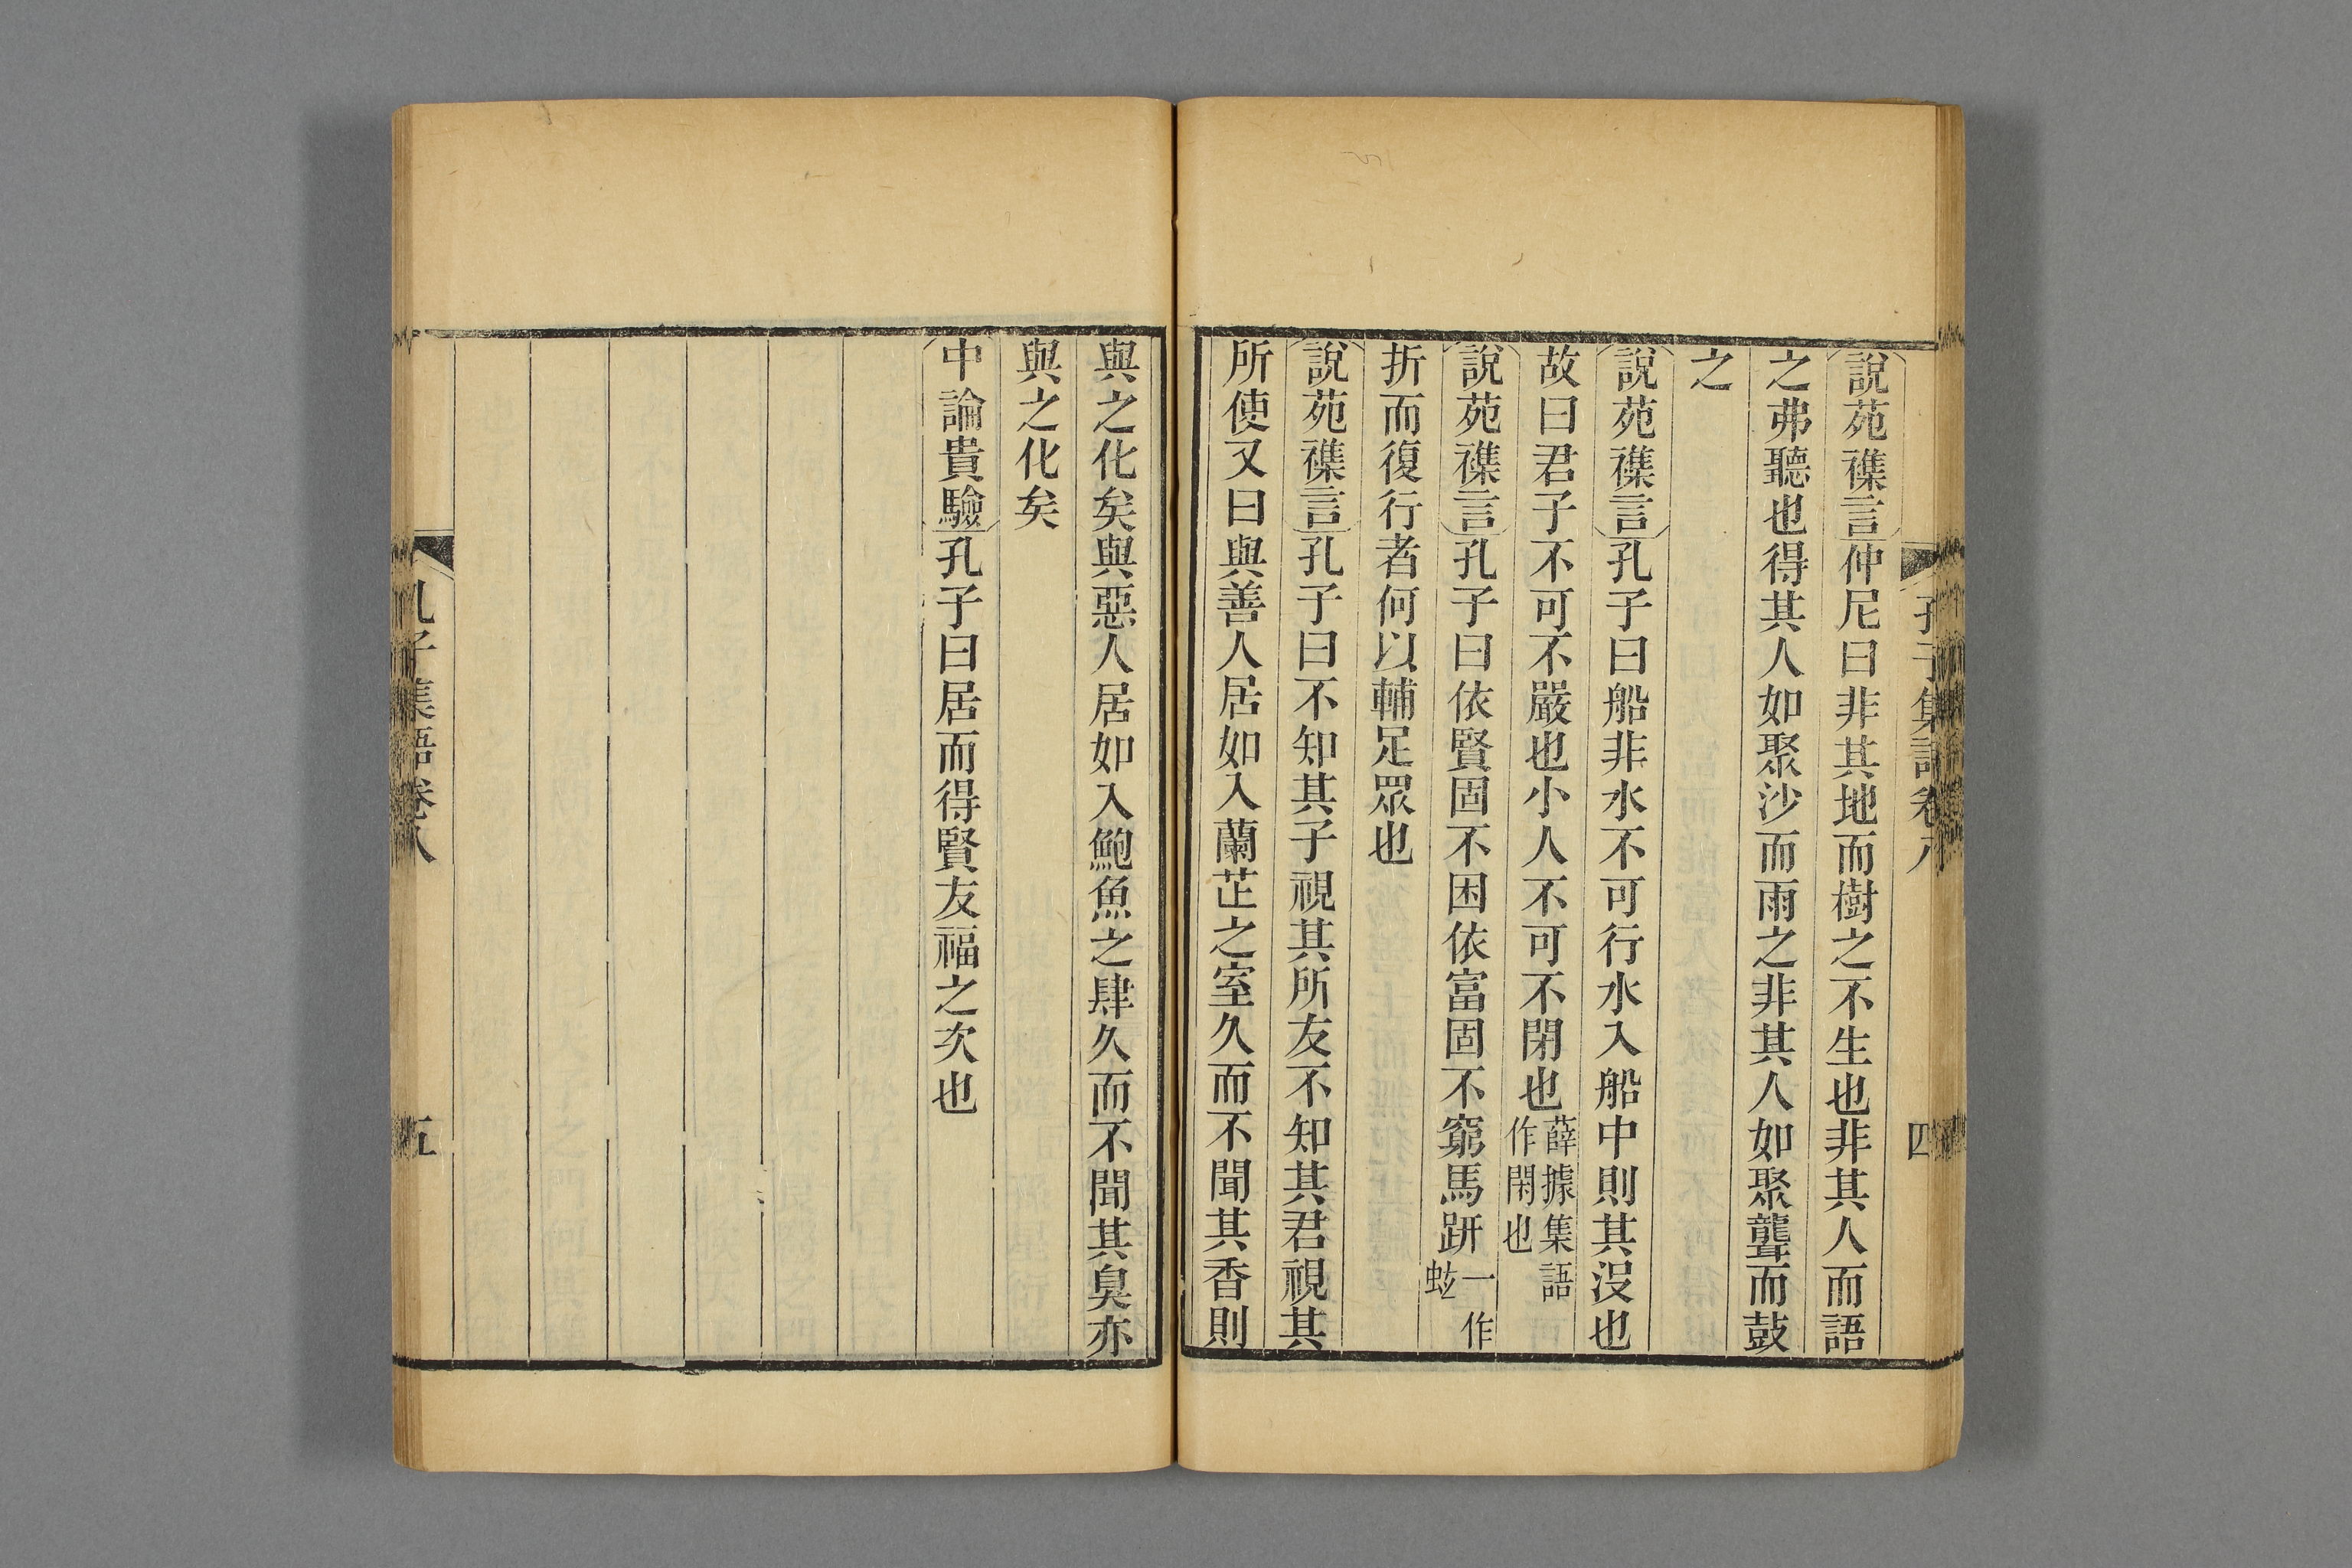 孔子集語卷八 四
說苑襍言仲尼曰非其地而樹之不生也非其人而語
之弗聽也得其人如聚沙而雨之非其人如聚聾而鼓
之
說苑襍言孔子曰船非水不可行水入船中則其沒也
故曰君子不可不嚴也小人不可不閉也薛據集語作閑也
說苑襍言孔子曰依賢固不困依富固不窮馬趼一作蚿
折而復行者何以輔足眾也
說苑襍言孔子曰不知其子視其所友不知其君視其
所使又曰與善人居如入蘭芷之室久而不聞其香則
與之化矣與惡人居如入鮑魚之肆久而不聞其臭亦
與之化矣
中論貴驗孔子曰居而得賢友福之次也
孔子集語卷八 五